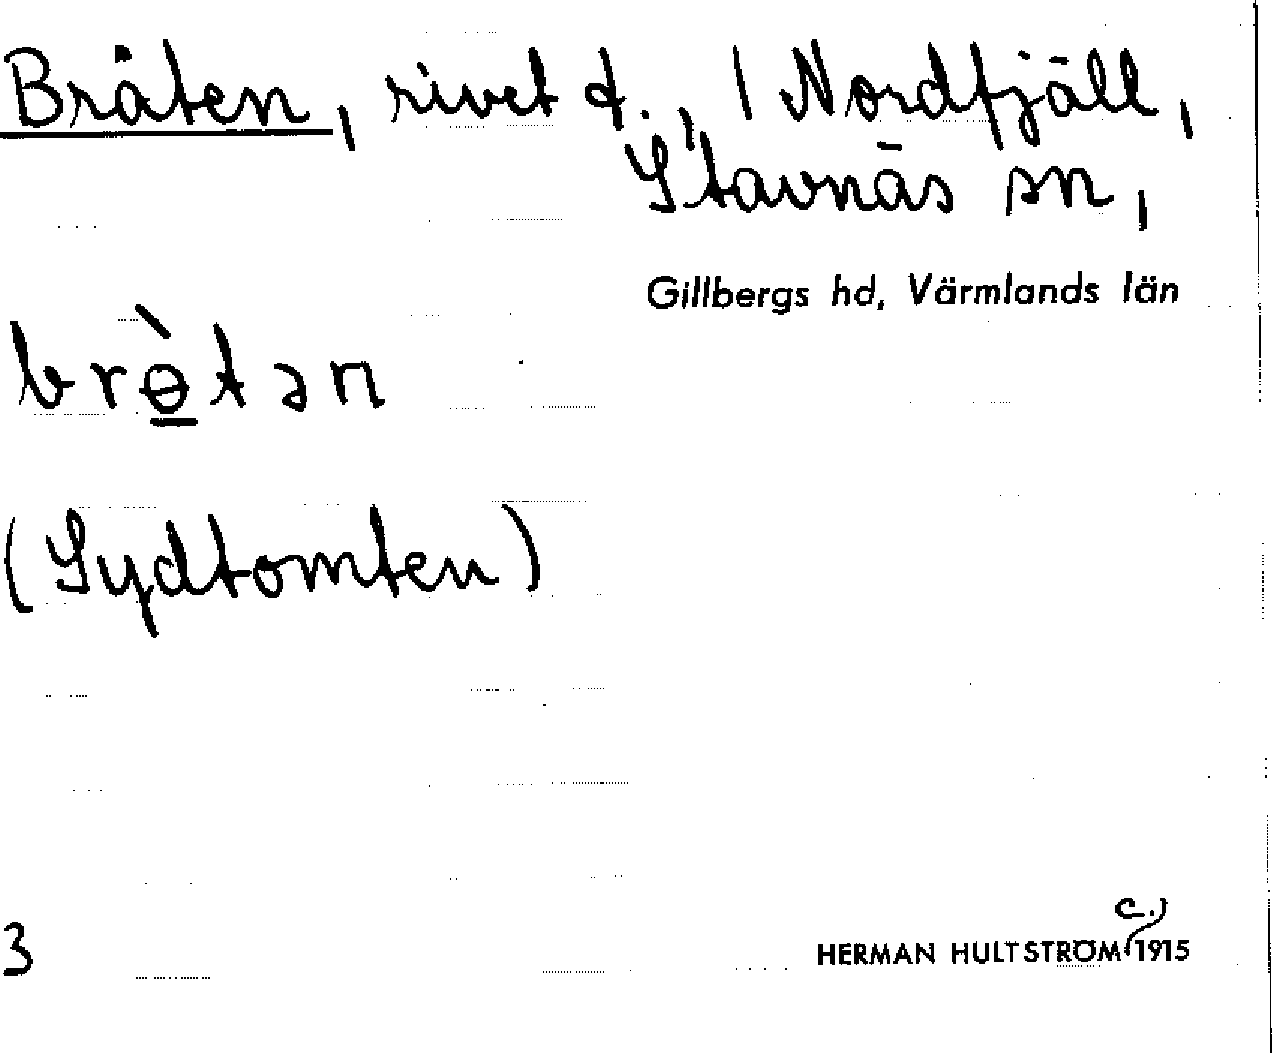 Bråten, rivet t., / Nordfjäll,
Stavnäs sn,
Gillbergs hd, Värmlands län
brɵ̠̀tən
(Sydtomten)
c.)
3 HERMAN HULTSTRÖM 1915